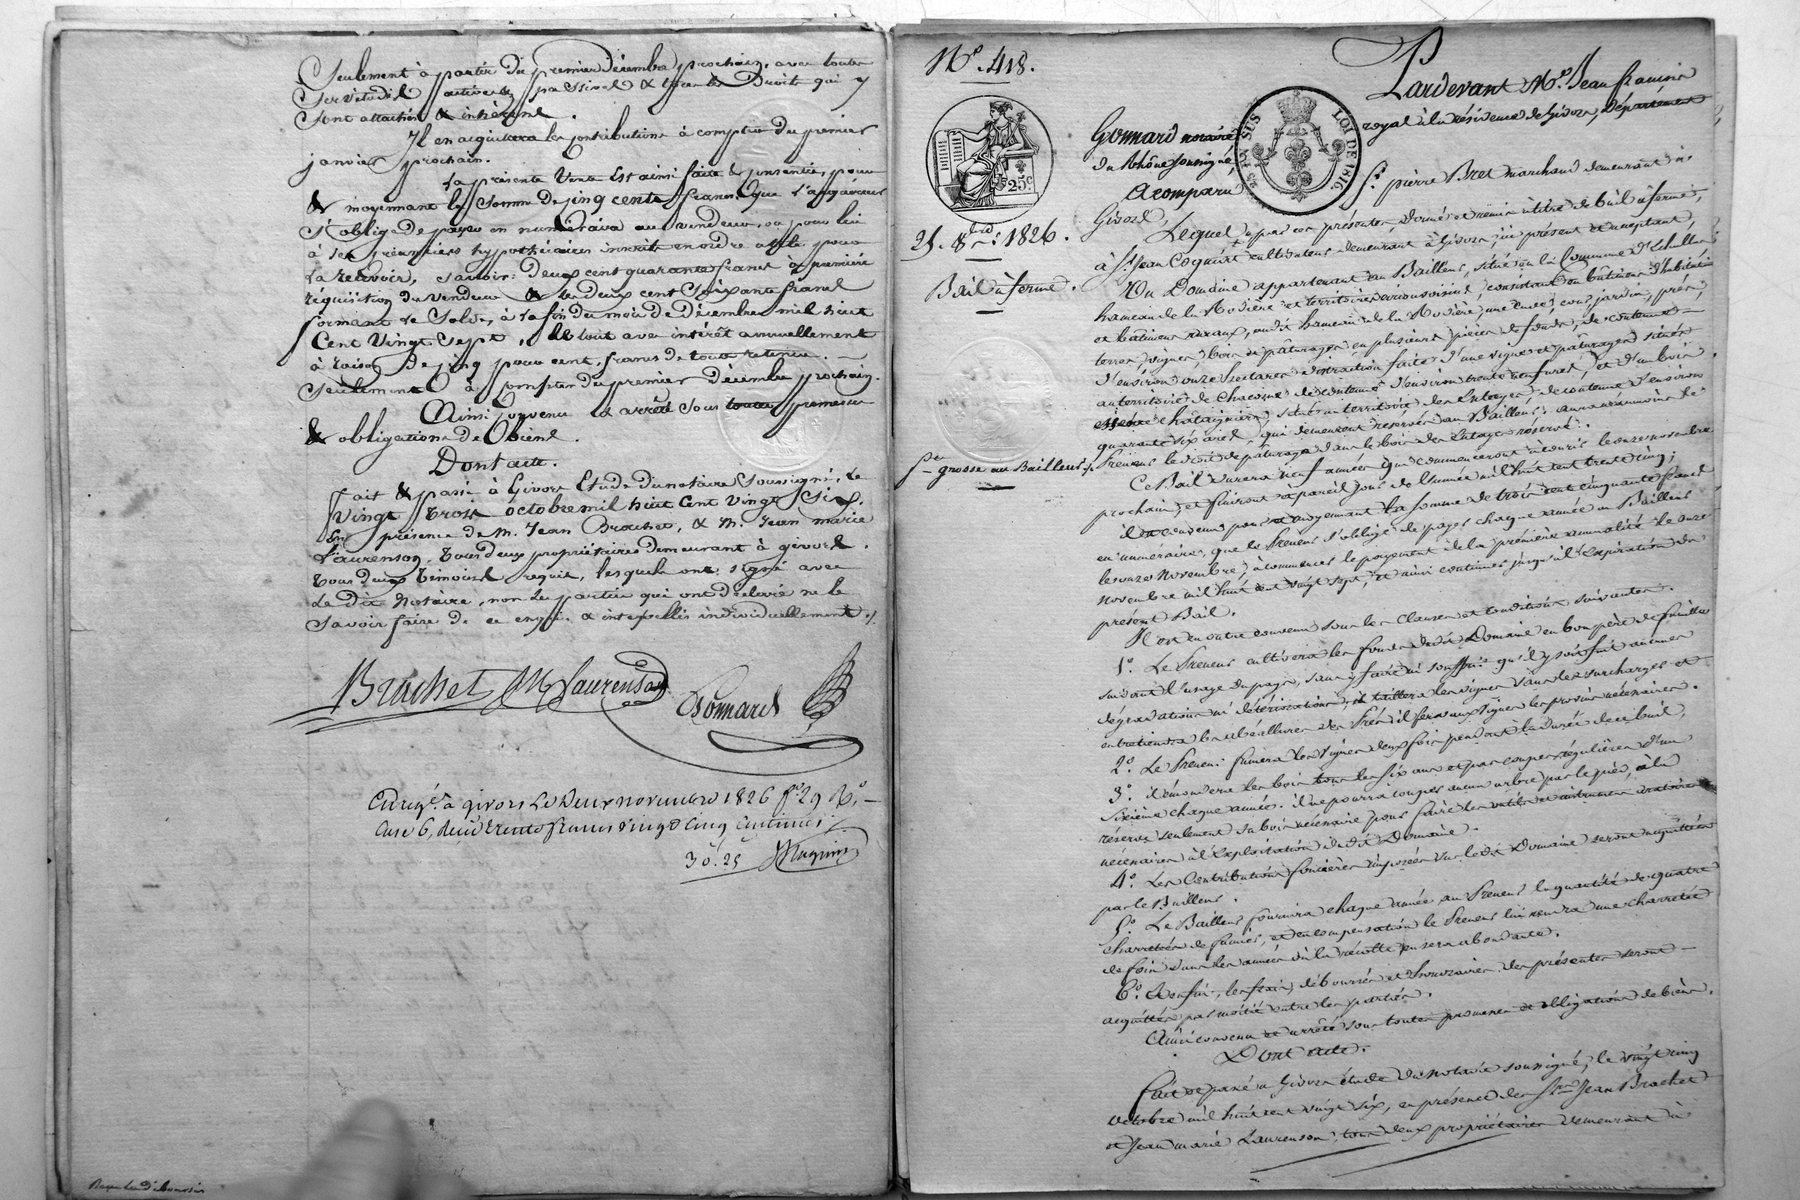 Seulement à partir du premier décembre prochain, avec toutes
Servitudes actives & passives & tous les Droits qui y
Sont attachés & inhérens.
Il en acquittera les contributions à compter du premier
janvier prochain.
La présente Vente est ainsi faite & consentie, pour
& moyennant la Somme de cinq cents francs, que l'acquéreur
s'oblige de payer en numéraire au vendeur, ou pour lui
à ses créanciers hypothécaires inscrits en ordre utile pour
la recevoir, savoir: deux cent quarante francs à première
réquisition du vendeur & les deux cent soixante francs
formant le Solde, à la fin du mois de Décembre mil huit
Cent Vingt Sept, le tout avec intérêt annuellement
à raison de cinq pour cent, francs de toute retenue.
Seulement à compter du premier décembre prochain.
Ainsi convenu & arrêté sous toutes promesses
& obligations de Biens.
Dont acte.
Fait & passé à Givors Etude du notaire Soussigné, le
Vingt Trois octobre mil huit Cent Vingt Six,
En présence de M. Jean Brachet, & M. Jean marie
Laurenson, tous deux propriétaires demeurant à Givors.
tous deux témoins requis, lesquels ont signé avec
le dit Notaire, non les parties qui ont déclaré ne le
Savoir faire de ce enquis & interpellés individuellement ./.
Brachet JM Laurenson Gonnard
Enregé. à Givors le Deux novembre 1826 fo. 29 Ro.
Case 6, Reçu trente francs vingt Cinq Centimes
30.25
No. 418.
25. 8bre. 1826.
Bail à ferme.
fte. grosse au Bailleur ./.
25 EN SUS
LOI DE 1816.
25c
Pardevant Me. Jean françois
Gonnard notaire royal à la résidence de Givors, département
du Rhône soussigné,
A comparu Sr. pierre Bret marchand demeurant à
Givors,
Lequel a par ces présentes, donné et remis à titre de bail à ferme,
à Sr. Jean Coquart cultivateur demeurant à Givors, ici présent et acceptant,
Un Domaine appartenant au Bailleur, situé sur la Commune d'Echallas
hameau de la Rodière et territoires circonvoisins, consistant en bâtimens d'habitation
et bâtimens ruraux, audit hameau de la Rodière, une cour, jardin, prés,
terres, vignes, bois et pâturages en plusieurs pièces de fonds, de contenue
d'environ onze hectares, distraction faite d'une vigne et pâturages situés
au territoire de Chacone de contenue d'environ trente ares, et d'un bois
essence châtaigniers, situé au territoire des de contenue d'environ
quarante six ares, qui demeurent réservés au Bailleur; aura néanmoins le
Preneur le droit de pâturage dans le bois réservé.
Ce Bail durera neuf années qui commenceront à courir le onze novembre
prochain et finiront à pareil jour de l'année mil huit cent trente cinq;
il est consenti pour et moyennant la somme de trois cent cinquante francs
en numéraire, que le Preneur s'oblige de payer chaque année au Bailleur
le onze Novembre, à commencer le payement de la première annualité le onze
novembre mil huit cent vingt sept, et ainsi continuer jusqu'à l'expiration du
présent Bail.
Il est en outre convenu sous les Clauses et conditions suivantes.
1o. Le Preneur cultivera les fonds dudit Domaine en bon père de famille
suivant l'usage du pays, sans y faire ni souffrir qu'il y soit fait aucunes
dégradations ni détériorations, il taillera les vignes sans les surcharger et
entretiendra les béalières des Prés, il fera aux vignes les provins nécessaires.
2o. Le Preneur fumera les vignes deux fois pendant la durée de ce bail,
3o. il émondera les bois tous les six ans et par coupes régulières d'un
sixième chaque année. il ne pourra couper aucun arbre par le pied, à la
réserve seulement du bois nécessaire pour faire les outils et instrumens aratoires
nécessaires à l'exploitation dudit Domaine.
4o. Les Contributions foncières imposées sur ledit Domaine seront acquittées
par le Bailleur.
5o. Le Bailleur fournira chaque année au Preneur la quantité de quatre
charretées de fumier, et en compensation le Preneur lui rendra une charretée
de foin dans les années où la récolte en sera abondante.
6o. Enfin, les frais, déboursés et honoraires des présentes seront
acquittés par moitié entre les parties.
Ainsi convenu et arrêté sous toutes promesses et obligations de biens.
Dont acte.
Fait et passé à Givors étude du notaire soussigné, le vingt cinq
octobre mil huit cent vingt six, en présence des Srs. Jean Brachet
et Jean marie Laurenson, tous deux propriétaires demeurant à